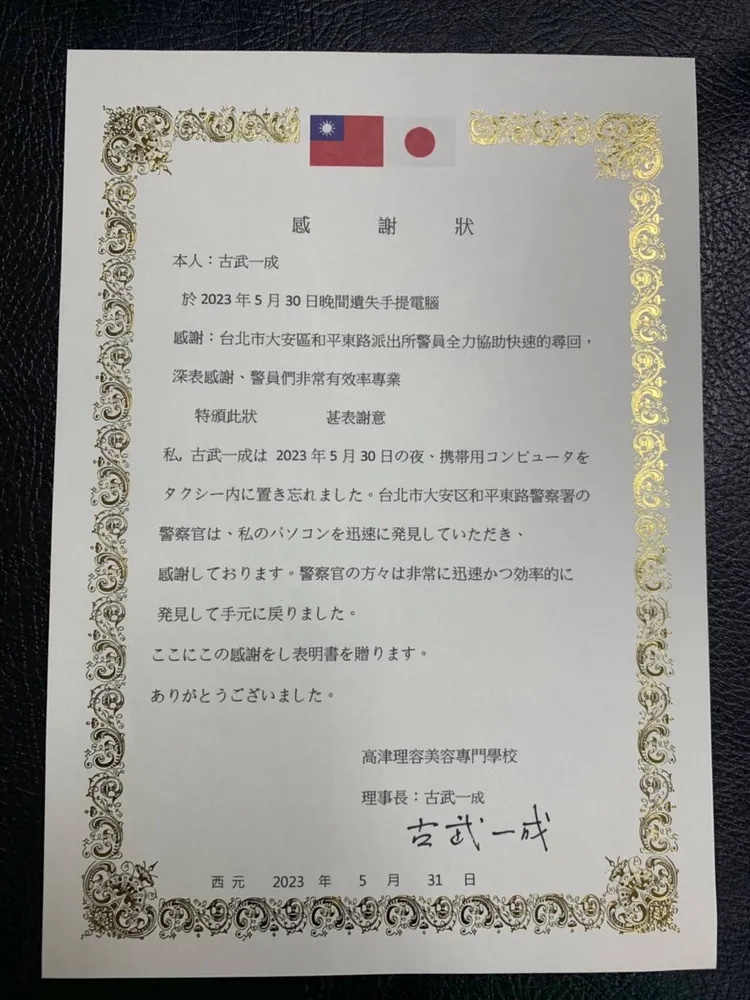 感 謝 狀
本人：古武一成
於 2023 年 5 月 30 日晚間遺失手提電腦
感謝：台北市大安區和平東路派出所警員全力協助快速的尋回，
深表感謝、警員們非常有效率專業
特頒此狀 甚表謝意
私, 古武一成は 2023 年 5 月 30 日の夜、携帯用コンピュータを
タクシー内に置き忘れました。台北市大安区和平東路警察署の
警察官は、私のパソコンを迅速に発見していただき、
感謝しております。警察官の方々は非常に迅速かつ効率的に
発見して手元に戻りました。
ここにこの感謝をし表明書を贈ります。
ありがとうございました。
高津理容美容專門學校
理事長：古武一成
古武一成
西元 2023 年 5 月 31 日